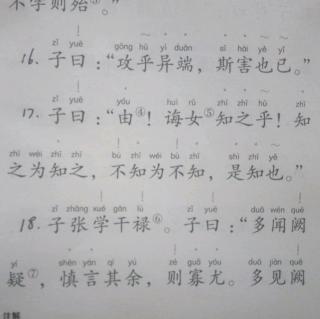 不学则殆③。”
zǐ yuē gōng hū yì duān sī hài yě yǐ
16. 子曰：“攻乎异端，斯害也已。”
zǐ yuē yóu huì rǔ zhī zhī hū zhī
17. 子曰：“由④！诲女⑤知之乎！知
zhī wéi zhī zhī bù zhī wéi bù zhī shì zhī yě
之为知之，不知为不知，是知也。”
zǐ zhāng xué gān lù zǐ yuē duō wén quē
18. 子张学干禄⑥。子曰：“多闻阙
yí shèn yán qí yú zé guǎ yóu duō jiàn quē
疑⑦，慎言其余，则寡尤。多见阙
注解